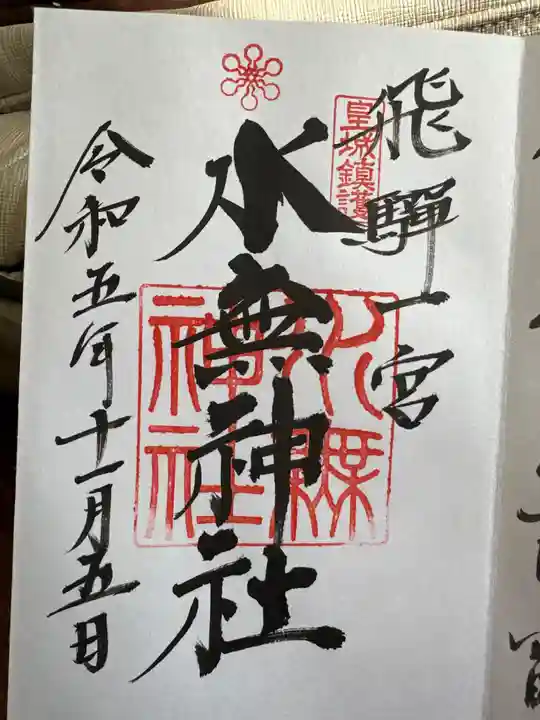 飛驒一宮
皇城鎮護
水無神社
水無神社
令和五年十一月五日